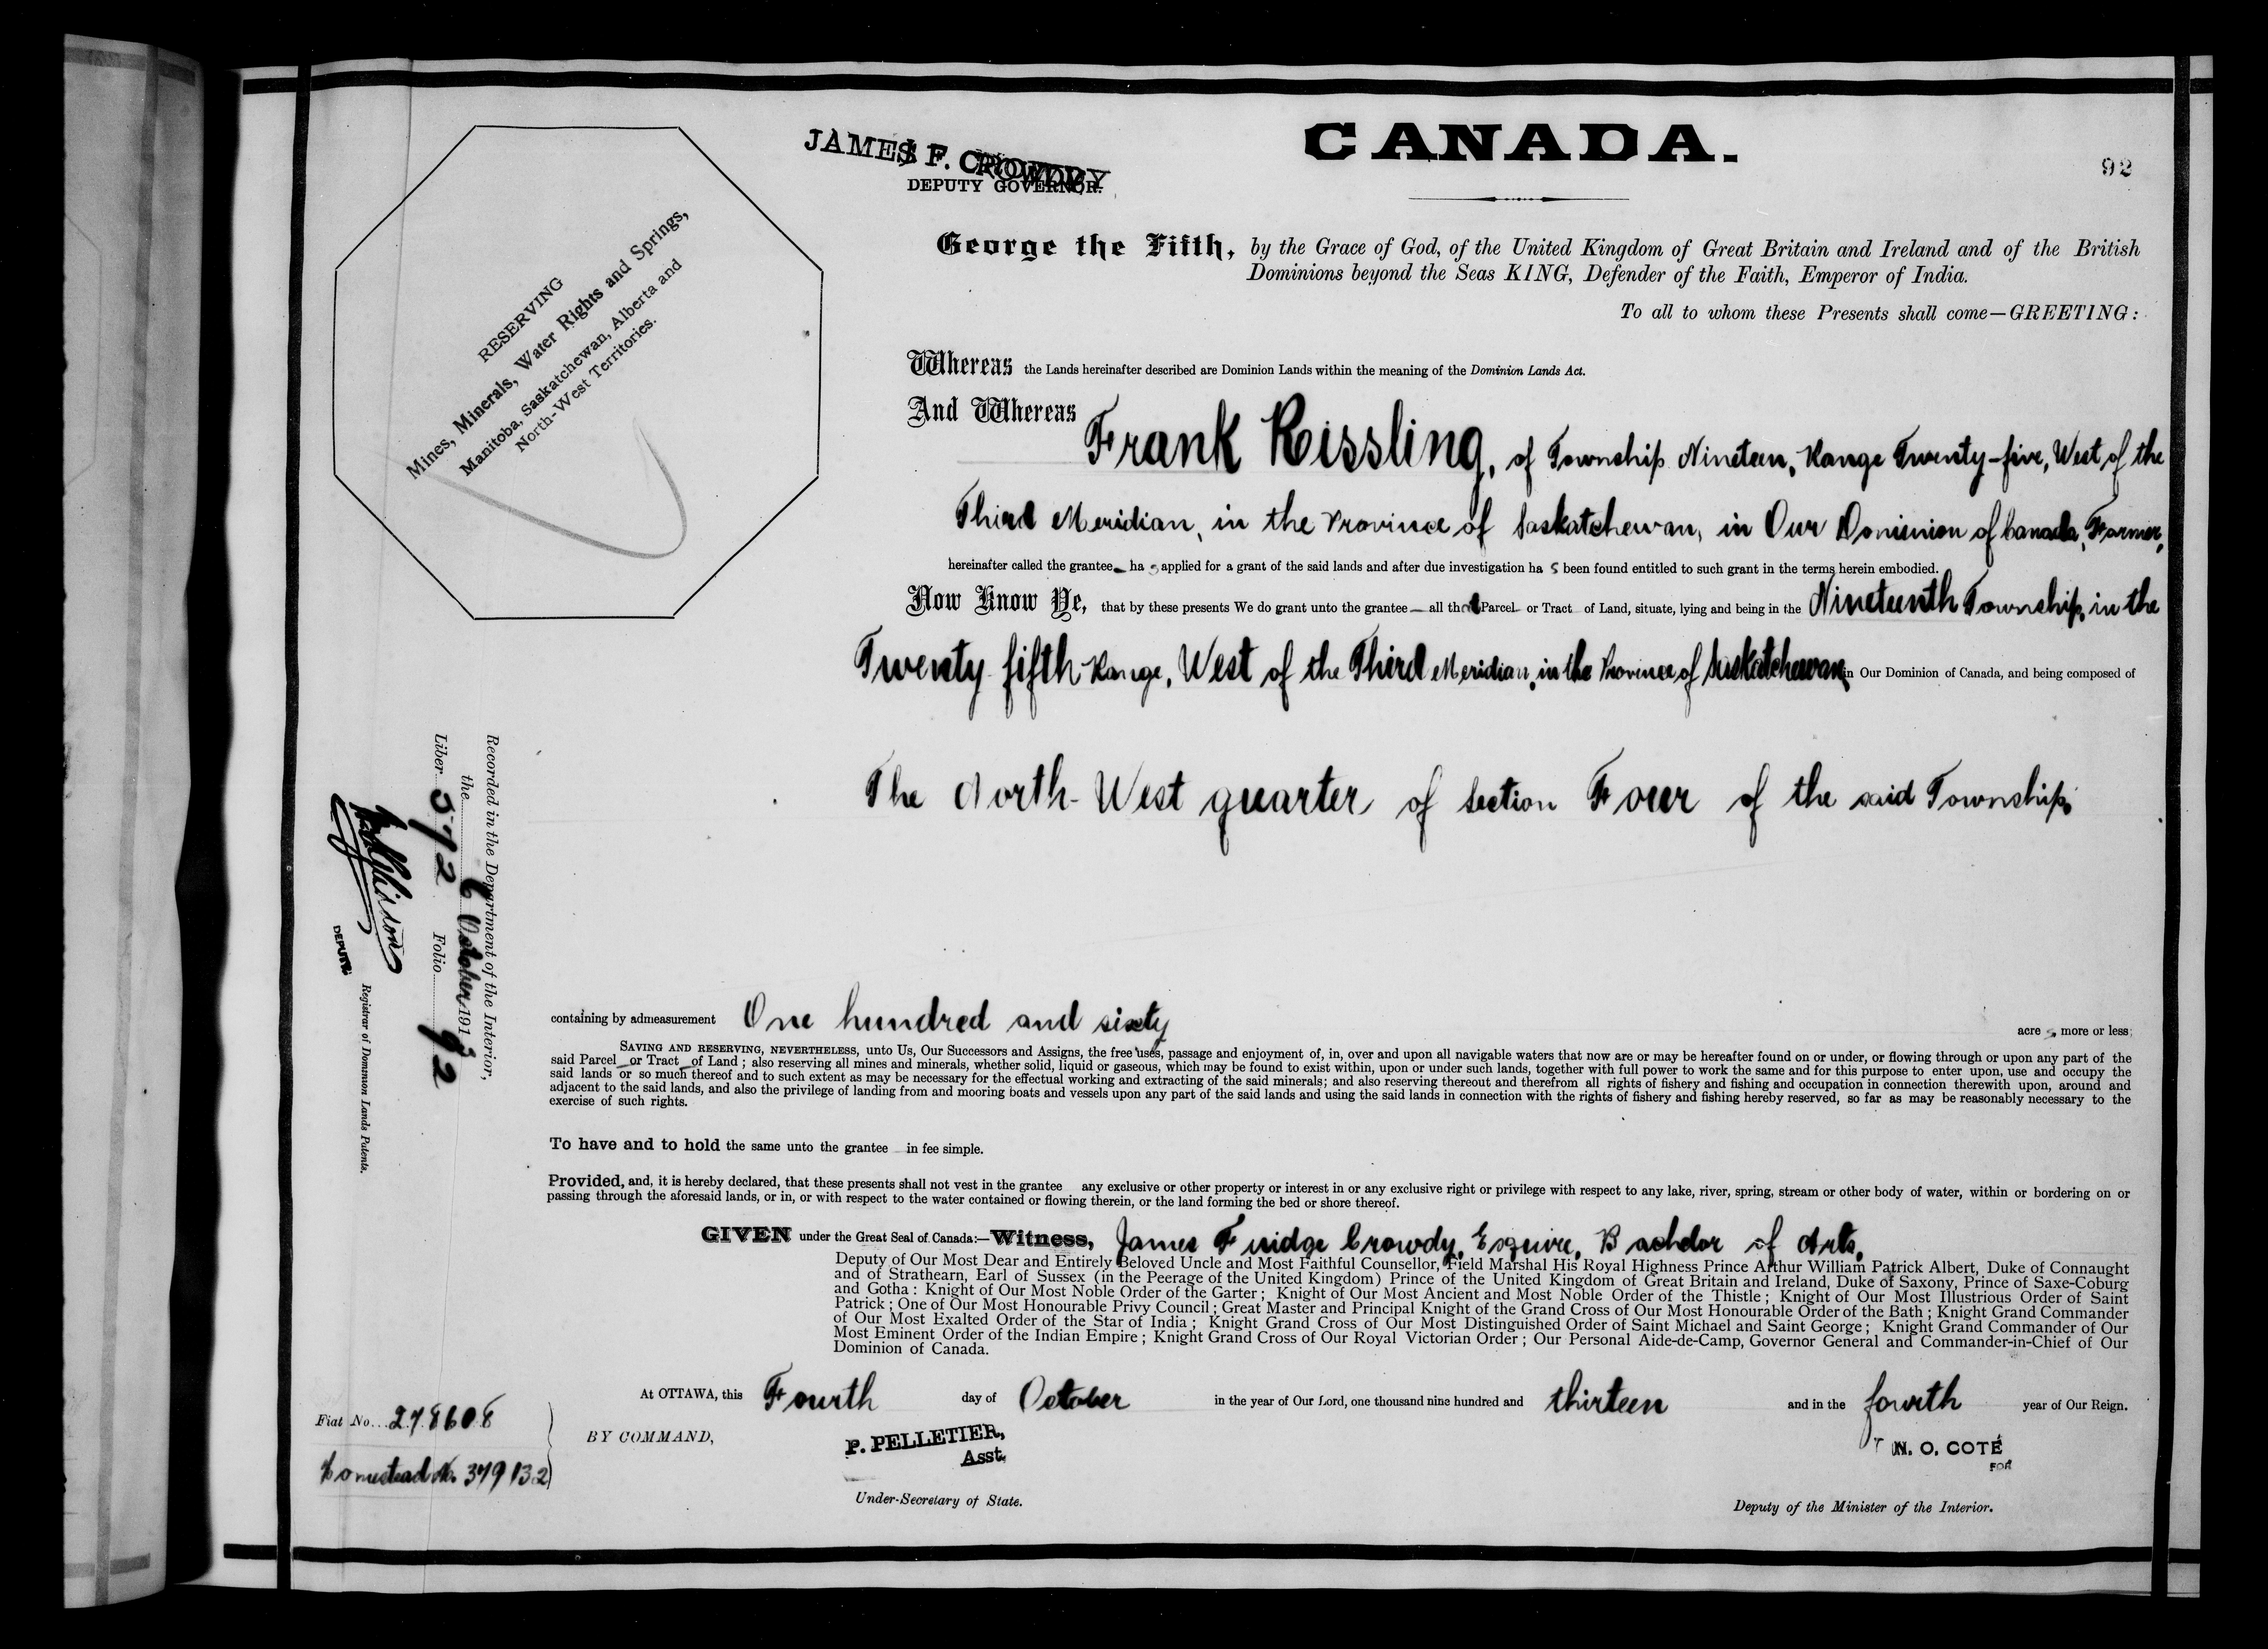 CANADA.
92
JAMES F. CROWDY
DEPUTY GOVERNOR.
RESERVING
Mines, Minerals, Water Rights and Springs,
Manitoba, Saskatchewan, Alberta and
North-West Territories.
George the Fifth, by the Grace of God, of the United Kingdom of Great Britain and Ireland and of the British
Dominions beyond the Seas KING, Defender of the Faith, Emperor of India.
To all to whom these Presents shall come—GREETING:
Whereas the Lands hereinafter described are Dominion Lands within the meaning of the Dominion Lands Act.
And Whereas Frank Kissling, of Township Nineteen, Range Twenty-five, West of the
Third Meridian, in the Province of Saskatchewan, in Our Dominion of Canada, Farmer,
hereinafter called the grantee ha s applied for a grant of the said lands and after due investigation ha s been found entitled to such grant in the terms herein embodied.
Now Know Ye, that by these presents We do grant unto the grantee all that Parcel or Tract of Land, situate, lying and being in the Nineteenth Township, in the
Twenty fifth Range, West of the Third Meridian, in the Province of Saskatchewan, in Our Dominion of Canada, and being composed of
The North-West quarter of Section Four of the said Township,
containing by admeasurement One hundred and sixty acre s, more or less;
SAVING AND RESERVING, NEVERTHELESS, unto Us, Our Successors and Assigns, the free uses, passage and enjoyment of, in, over and upon all navigable waters that now are or may be hereafter found on or under, or flowing through or upon any part of the
said Parcel or Tract of Land; also reserving all mines and minerals, whether solid, liquid or gaseous, which may be found to exist within, upon or under such lands, together with full power to work the same and for this purpose to enter upon, use and occupy the
said lands or so much thereof and to such extent as may be necessary for the effectual working and extracting of the said minerals; and also reserving thereout and therefrom all rights of fishery and fishing and occupation in connection therewith upon, around and
adjacent to the said lands, and also the privilege of landing from and mooring boats and vessels upon any part of the said lands and using the said lands in connection with the rights of fishery and fishing hereby reserved, so far as may be reasonably necessary to the
exercise of such rights.
To have and to hold the same unto the grantee in fee simple.
Provided, and, it is hereby declared, that these presents shall not vest in the grantee any exclusive or other property or interest in or any exclusive right or privilege with respect to any lake, river, spring, stream or other body of water, within or bordering on or
passing through the aforesaid lands, or in, or with respect to the water contained or flowing therein, or the land forming the bed or shore thereof.
GIVEN under the Great Seal of Canada:—Witness, James Fuidge Crowdy, Esquire, Bachelor of Arts,
Deputy of Our Most Dear and Entirely Beloved Uncle and Most Faithful Counsellor, Field Marshal His Royal Highness Prince Arthur William Patrick Albert, Duke of Connaught
and of Strathearn, Earl of Sussex (in the Peerage of the United Kingdom) Prince of the United Kingdom of Great Britain and Ireland, Duke of Saxony, Prince of Saxe-Coburg
and Gotha: Knight of Our Most Noble Order of the Garter; Knight of Our Most Ancient and Most Noble Order of the Thistle; Knight of Our Most Illustrious Order of Saint
Patrick; One of Our Most Honourable Privy Council; Great Master and Principal Knight of the Grand Cross of Our Most Honourable Order of the Bath; Knight Grand Commander
of Our Most Exalted Order of the Star of India; Knight Grand Cross of Our Most Distinguished Order of Saint Michael and Saint George; Knight Grand Commander of Our
Most Eminent Order of the Indian Empire; Knight Grand Cross of Our Royal Victorian Order; Our Personal Aide-de-Camp, Governor General and Commander-in-Chief of Our
Dominion of Canada.
At OTTAWA, this Fourth day of October in the year of Our Lord, one thousand nine hundred and thirteen and in the fourth year of Our Reign.
BY COMMAND,
P. PELLETIER,
Asst.
Under-Secretary of State.
N. O. COTÉ
FOR
Deputy of the Minister of the Interior.
Fiat No. 278608
Homestead No. 379132
Recorded in the Department of the Interior,
the 6 October 1913
Liber 572 Folio 92
DEPUTY
Registrar of Dominion Lands Patents.